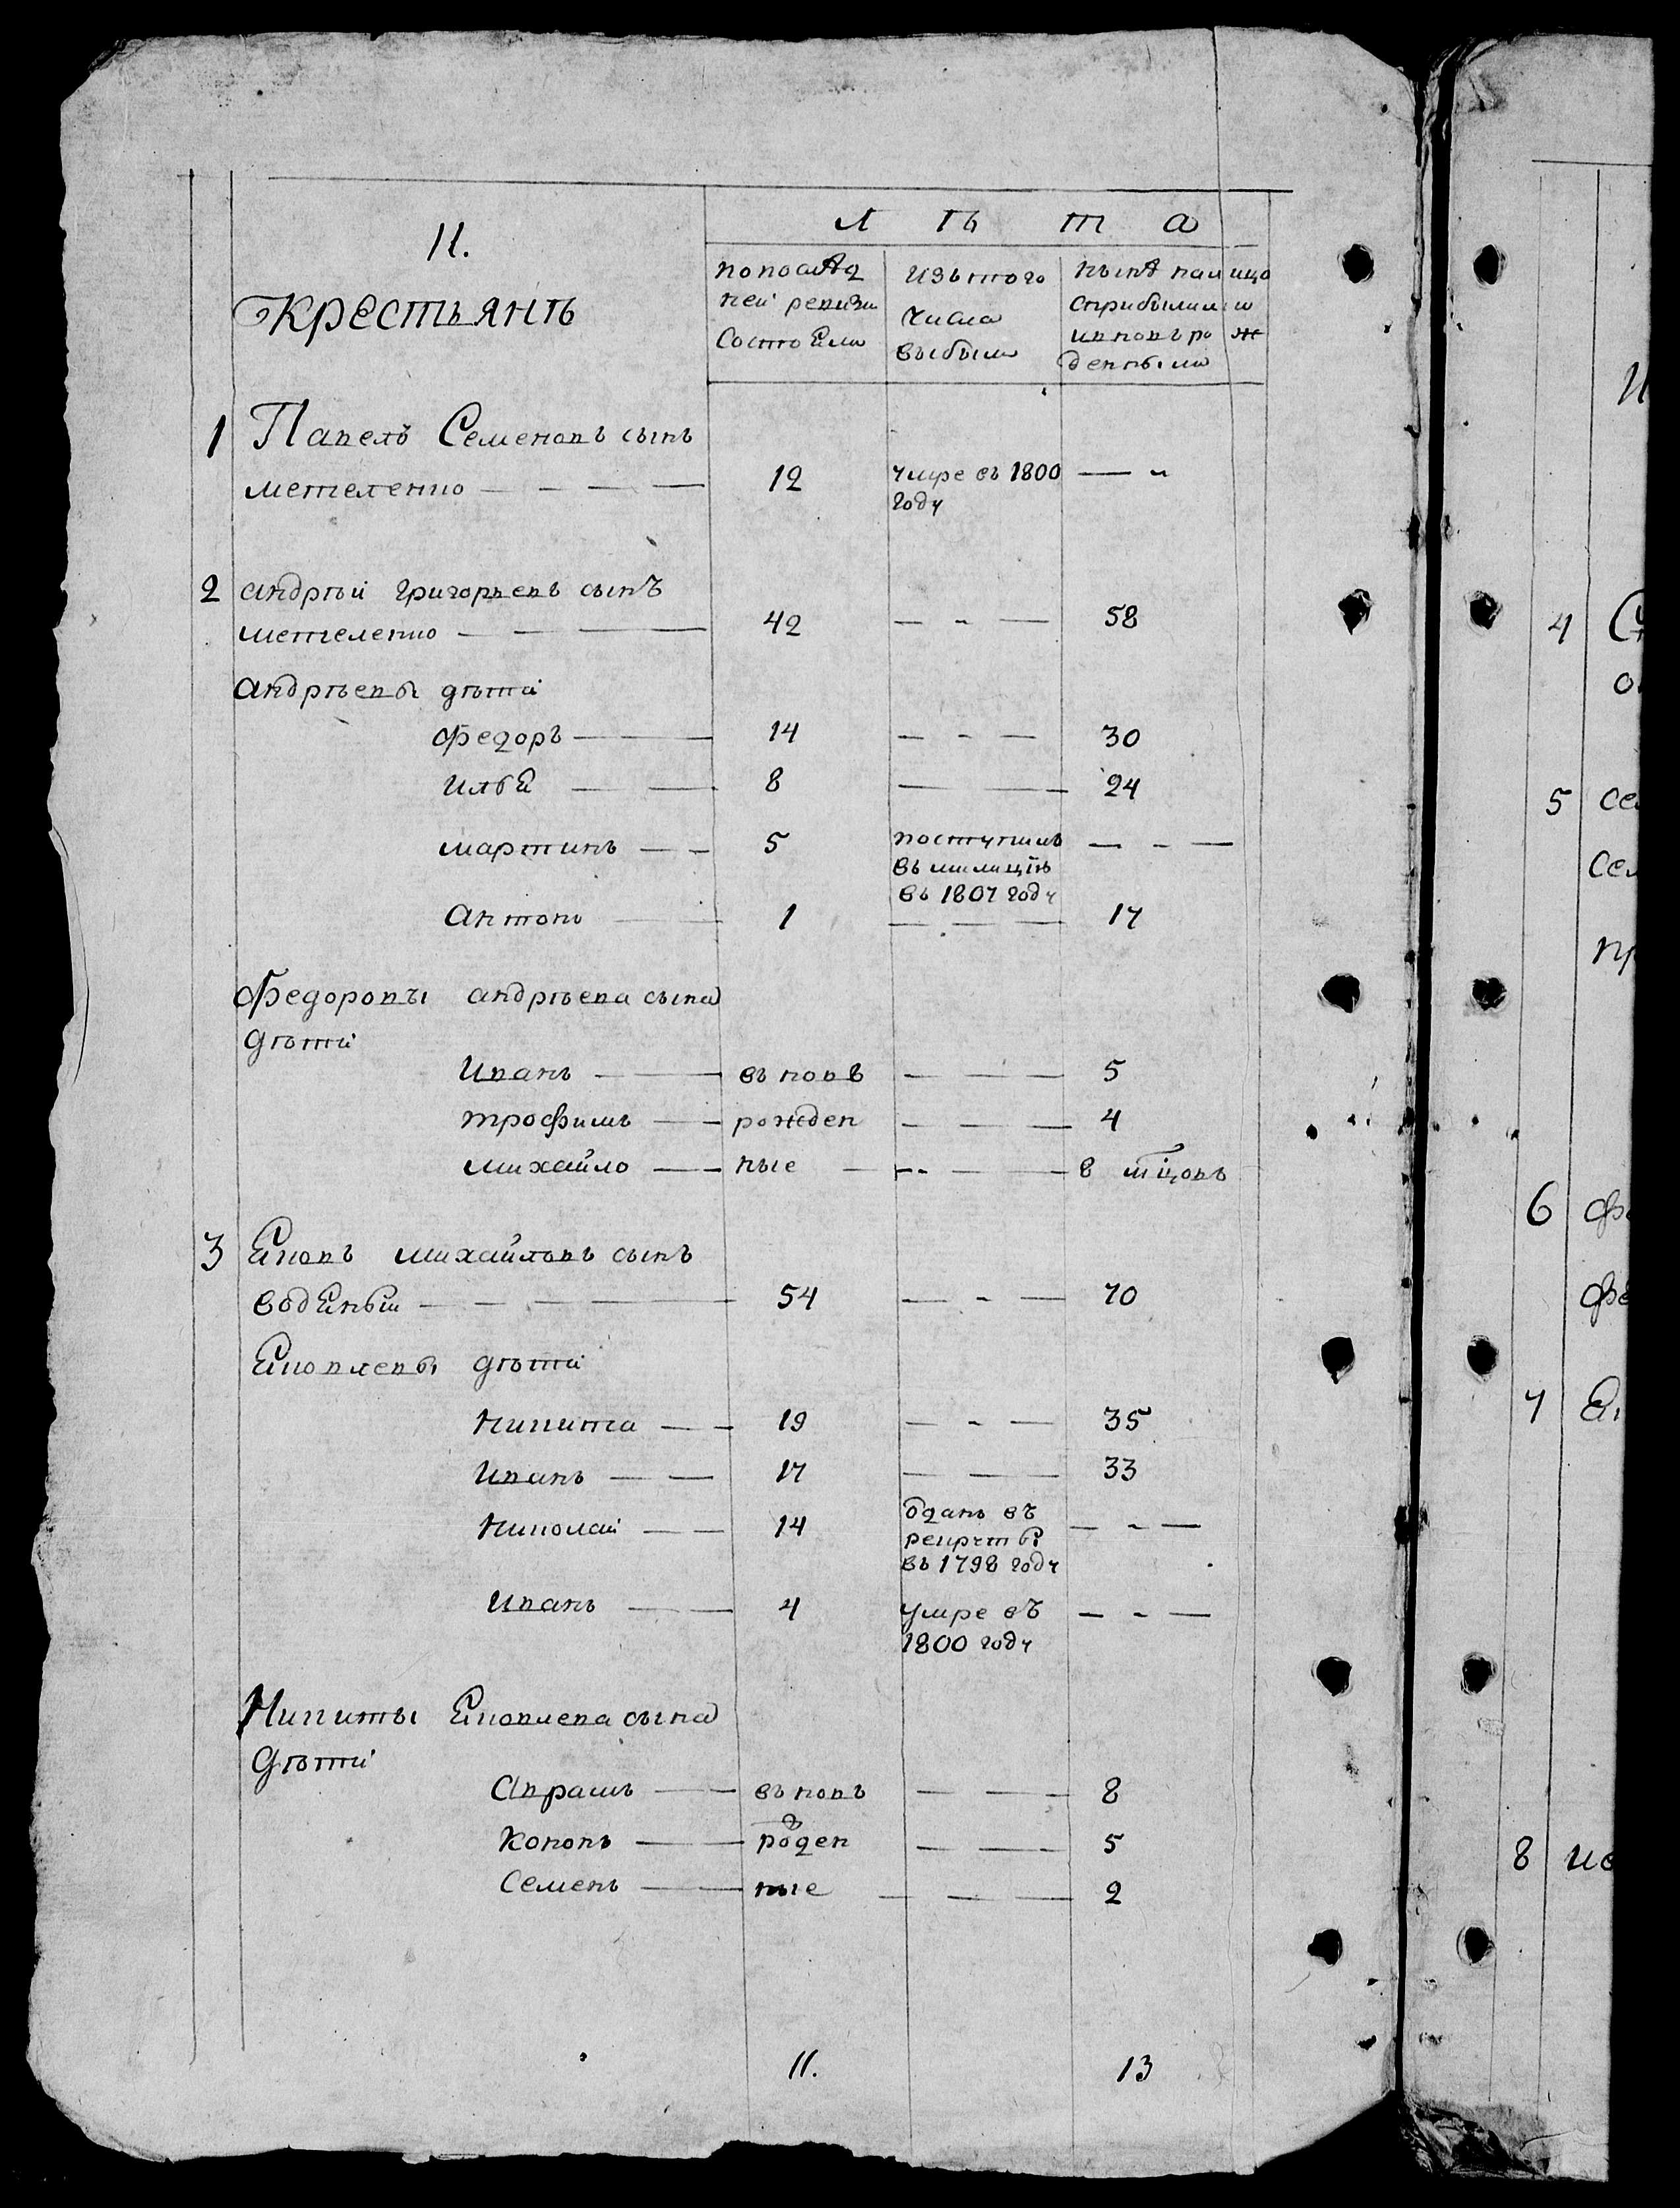 Л Ѣ Т А
II.
Крестьянѣ
попослѣд
ней ревизи
состояли
изъ того
числа
выбыли
нынѣ налицо
сприбылими
ивновъ рож
денными
1 Павелъ Семеновъ сынъ
метеленко 12 умре въ 1800
году
2 андрѣй григорьевъ сынъ
метеленко 42 58
андрѣевы дѣти
федоръ 14 30
илья 8 24
мартинъ 5 поступилъ
въ милицїю
въ 1807 году
антонъ 1 17
федоровы андрѣева сына
дѣти
Иванъ въ новъ 5
трофимъ рожден 4
михайло ные 8 мцовъ
3 Яковъ михайловъ сынъ
водяный 54 70
Яковлевы дѣти
никита 19 35
Иванъ 17 33
николай 14 одданъ въ
рекруты
въ 1798 году
иванъ 4 умре въ
1800 году
Никиты Яковлева сына
дѣти
аврамъ въ новъ 8
кононъ рожден 5
Семенъ ные 2
11. 13
И
4 С
о
5 се
сем
пр
6 фе
фе
7 Я
8 ив